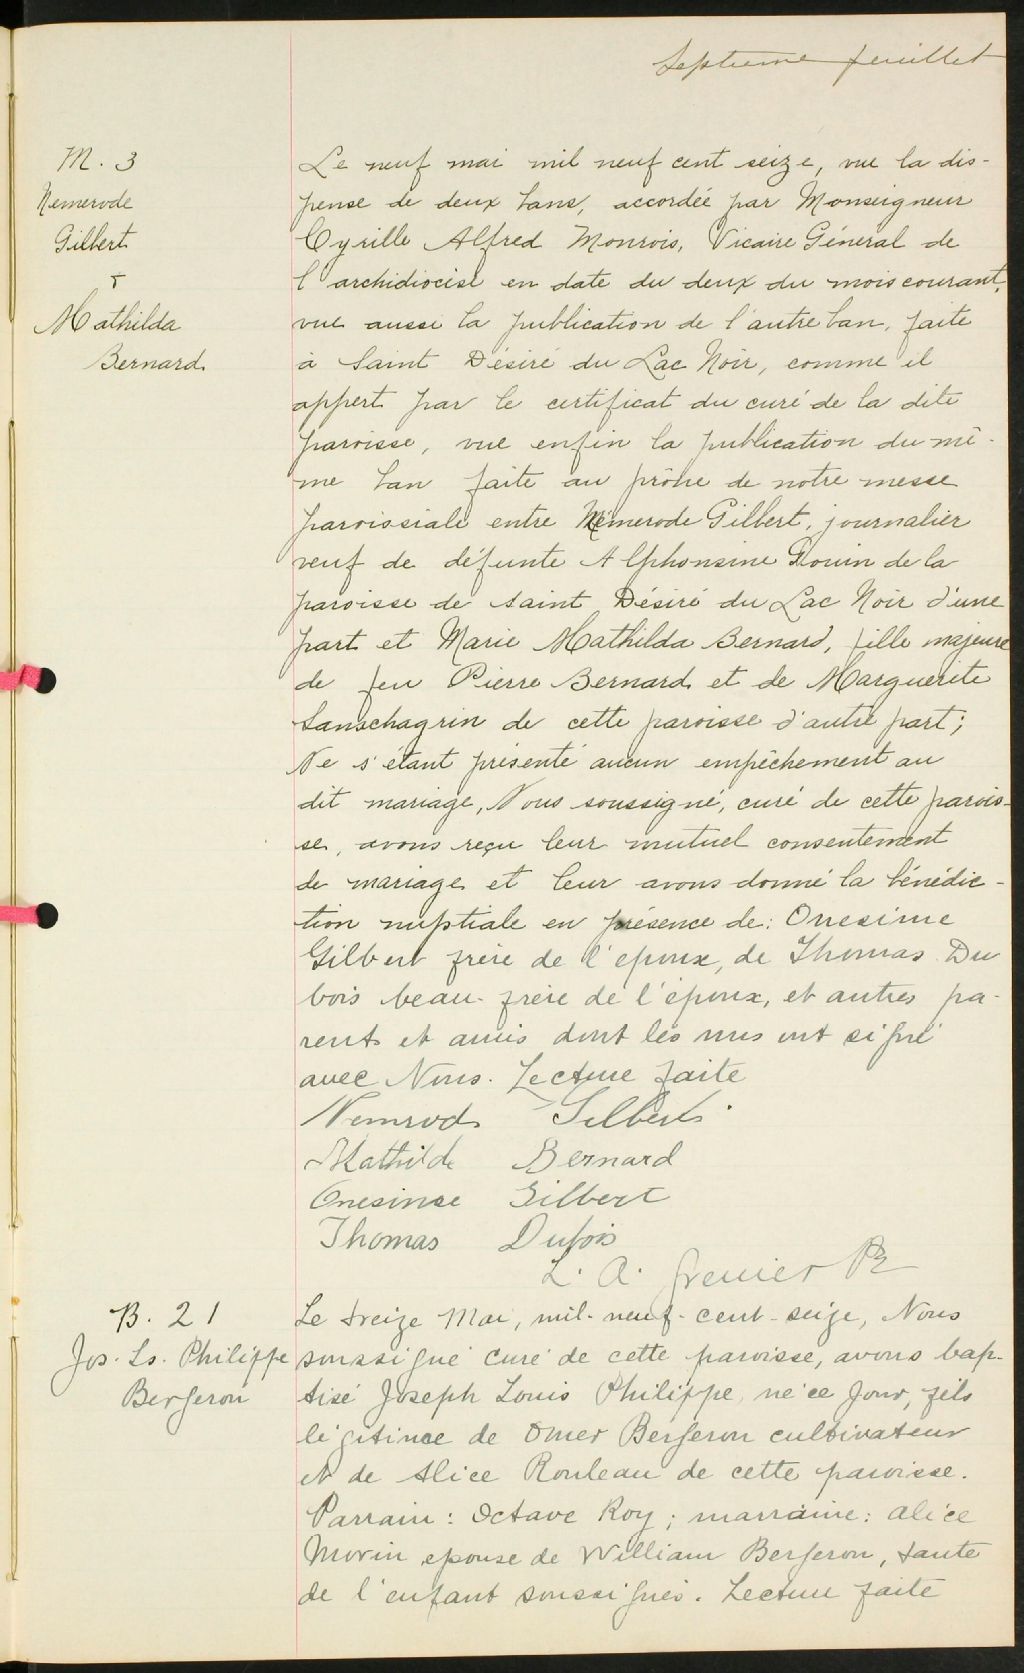 Septieme feuillet
M. 3
Nemerode
Gilbert
&
Mathilda
Bernard
Le neuf mai mil neuf cent seize, vue la dis-
pense de deux bans, accordée par Monseigneur
Cyrille Alfred Marois, Vicaire Géneral de
l'archidiocèse en date du deux du mois courant,
vue aussi la publication de l'autre ban, faite
à Saint Désiré du Lac Noir, comme il
appert par le certificat du curé de la dite
paroisse, vue enfin la publication du mê-
me ban faite au prône de notre messe
paroissiale entre Némerode Gilbert, journalier
veuf de défunte Alphonsine Drouin de la
paroisse de Saint Désiré du Lac Noir d'une
part et Marie Mathilda Bernard, fille majeure
de feu Pierre Bernard et de Marguerite
Sanschagrin de cette paroisse d'autre part;
Ne s'étant présenté aucun empêchement au
dit mariage, Nous soussigné, curé de cette parois-
se, avons reçu leur mutuel consentement
de mariage et leur avons donné la bénédic-
tion nuptiale en présence de: Onesime
Gilbert frère de l'epoux, de Thomas Du
bois beau-frère de l'époux, et autres pa-
rents et amis dont les uns ont signé
avec Nous. Lecture faite
Nemrod Gilbert
Mathilde Bernard
Onesime Gilbert
Thomas Dubois
L. A. Grenier Ptre
B. 21
Jos. Ls. Philippe
Bergeron
Le treize Mai, mil-neuf-cent-seize, Nous
soussigné curé de cette paroisse, avons bap-
tisé Joseph Louis Philippe, né ce jour, fils
légitime de Omer Bergeron cultivateur
et de Alice Rouleau de cette paroisse.
Parrain: Octave Roy; marraine: Alice
Morin epouse de William Bergeron, tante
de l'enfant soussignés. Lecture faite